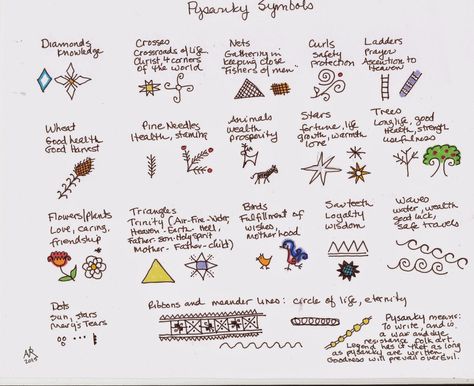 Pysanky Symbols
Diamonds
Knowledge
Crosses
Crossroads of life
Christ, 4 corners
of the world
Nets
Gathering in
keeping close
"Fishers of men"
Curls
Safety
protection
Ladders
Prayer
Ascention to
Heaven
Wheat
Good health
Good Harvest
Pine Needles
Health, stamina
Animals
wealth
prosperity
Stars
fortune, life
growth, warmth
love
Trees
Long life, good
Health, strength
usefulness
Flowers/plants
Love, caring,
friendship
Triangles
Trinity (Air-Fire-Water,
Heaven-Earth-Hell,
Father-Son-Holy Spirit
Mother-Father-child)
Birds
Fulfillment of
wishes,
mother hood
Sawteeth
Loyalty
wisdom
Waves
water, wealth
good luck,
safe travels
Dots
Sun, stars
Mary's Tears
Ribbons and meander lines: circle of life, eternity
Pysanky means:
To write, and is
a wax and dye
resistance folk art.
Legend has it that as long
as pysanky are written,
Goodness will prevail over Evil.